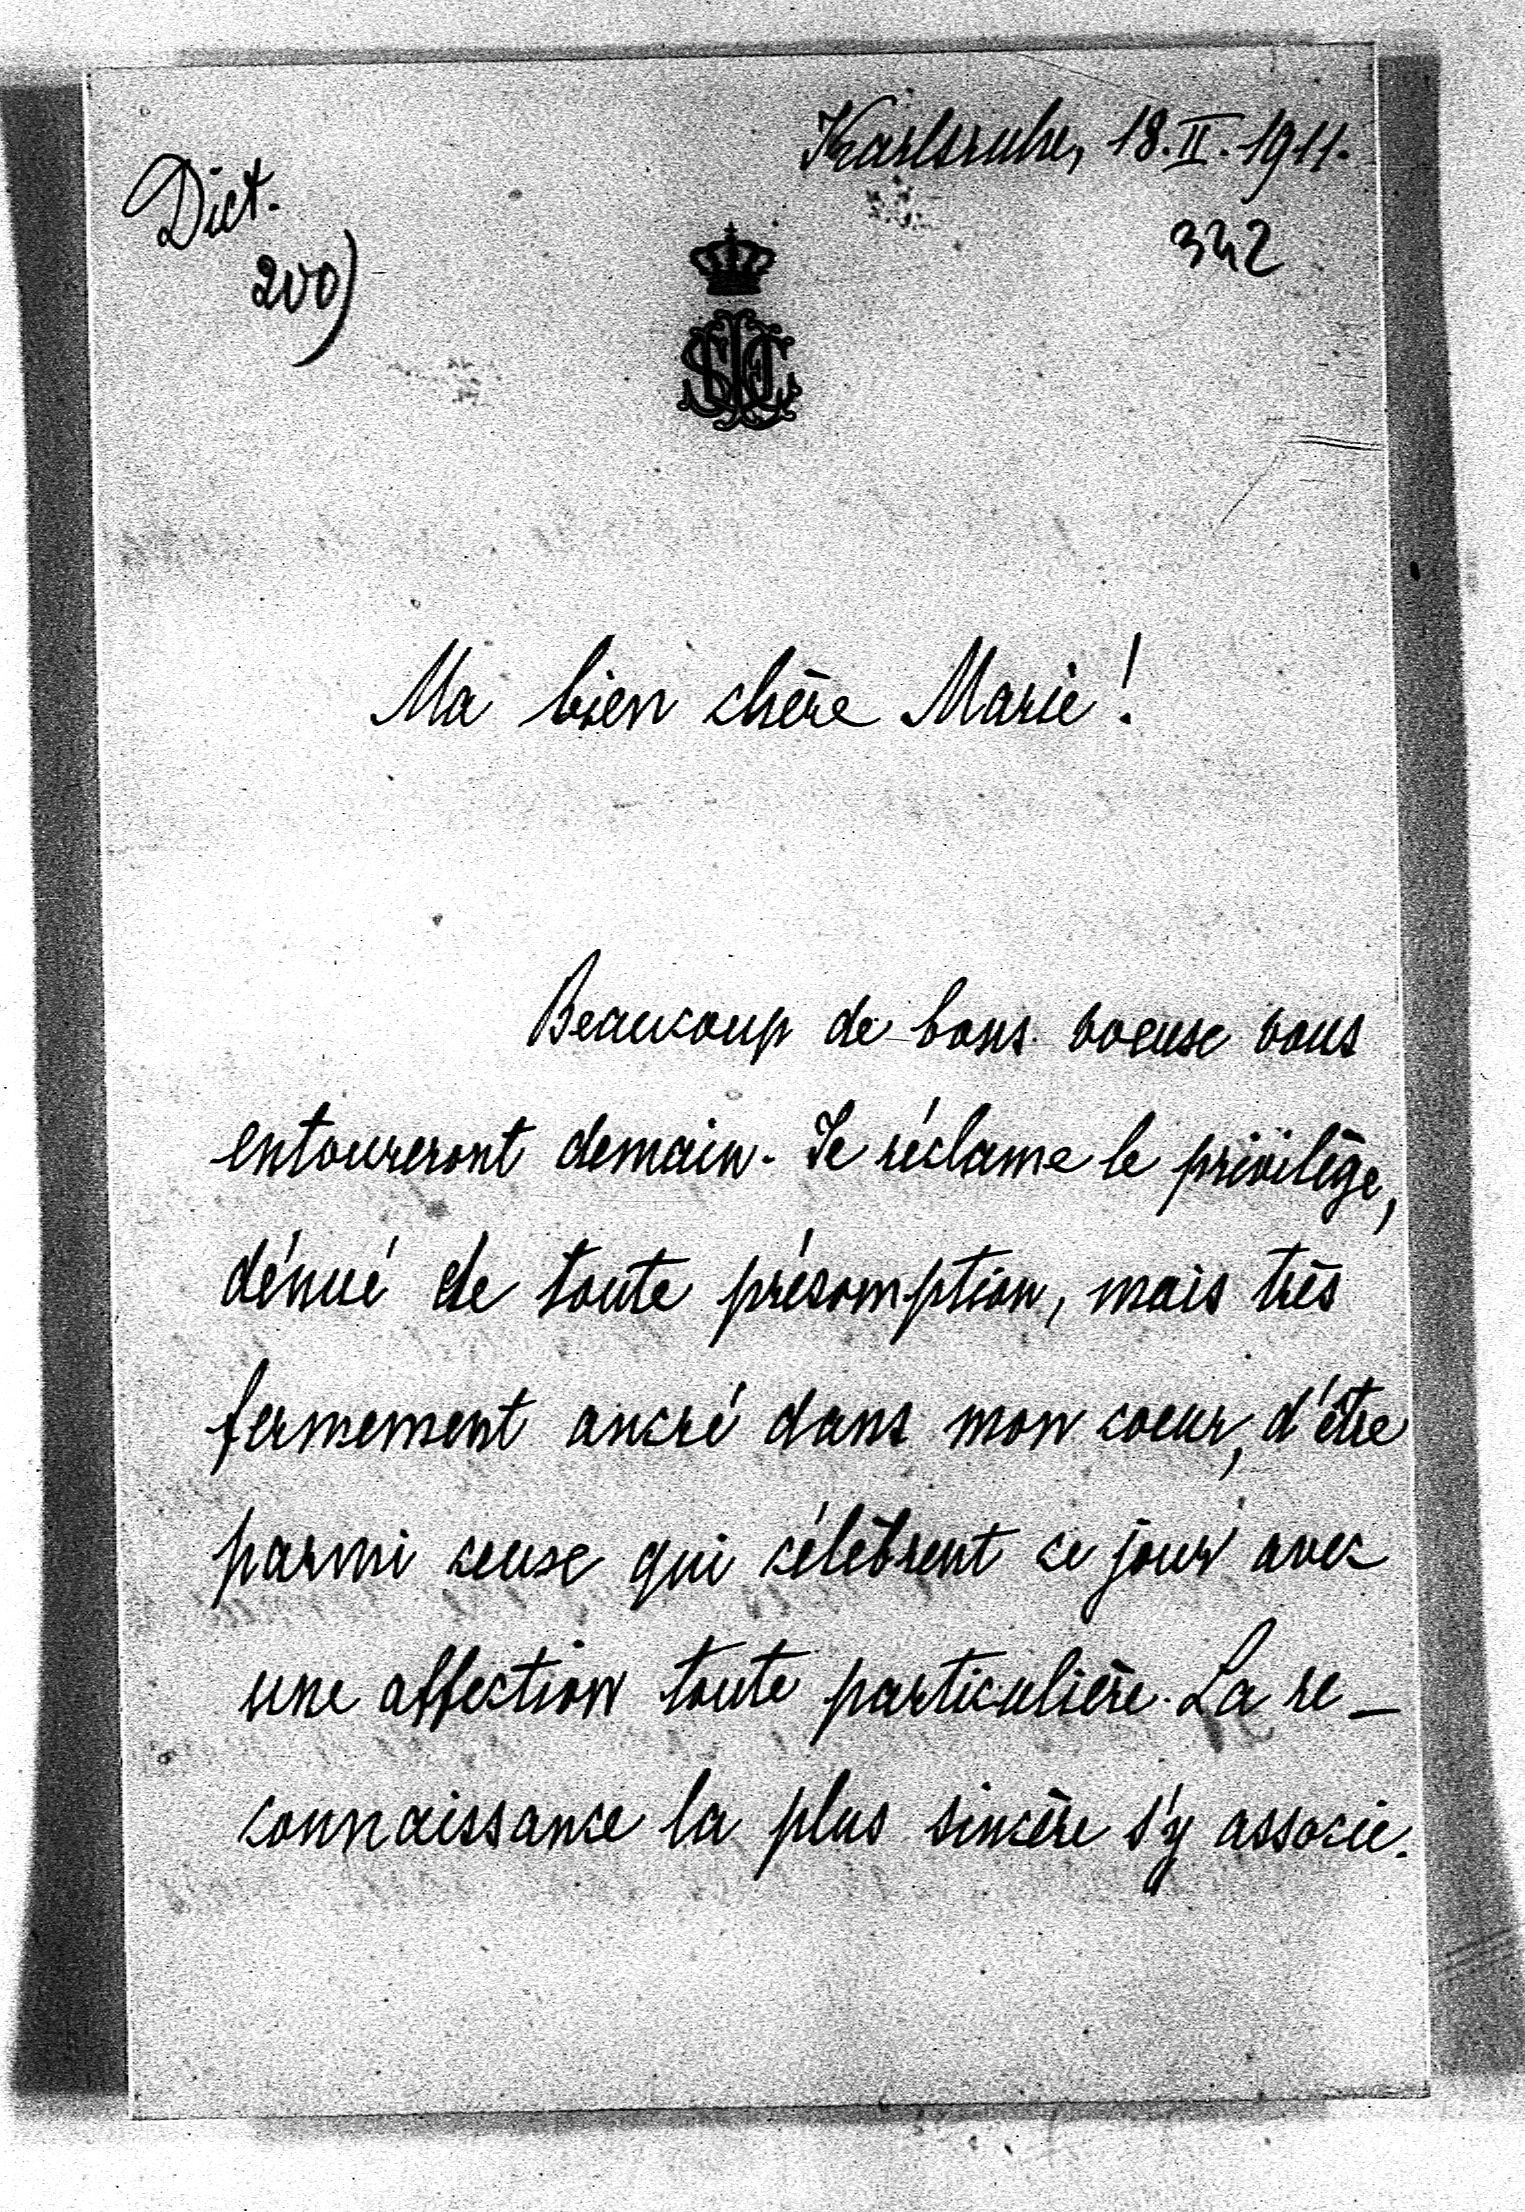 Karlsruhe, 18. II. 1911.
Dict.
200)
342
Ma bien chère Marie!
Beaucoup de bons voeux vous
entoureront demain. Je réclame le privilège,
dénué de toute présomption, mais très
fermement ancré dans mon coeur, d'être
parmi ceux qui célèbrent ce jour avec
une affection toute particulière. La re_
connaissance la plus sincère s'y associe.